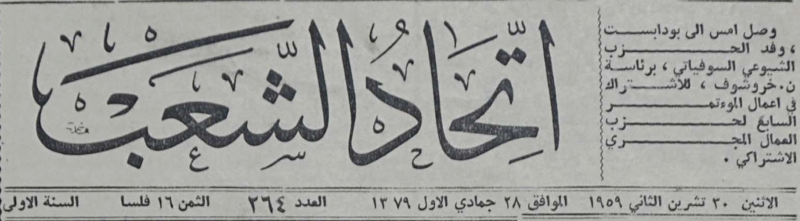 وصل امس الى بودابست
، وفد الحزب
الشيوعي السوفياتي ، برئاسة
ن.خروشوف ، للاشتراك
في اعمال المؤتمر
السابع لحزب
العمال المجري
الاشتراكي .
اتحاد الشعب
الاثنين ٣٠ تشرين الثاني ١٩٥٩ الموافق ٢٨ جمادي الاول ١٣٧٩ العدد ٢٦٤ الثمن ١٦ فلسا السنة الاولى